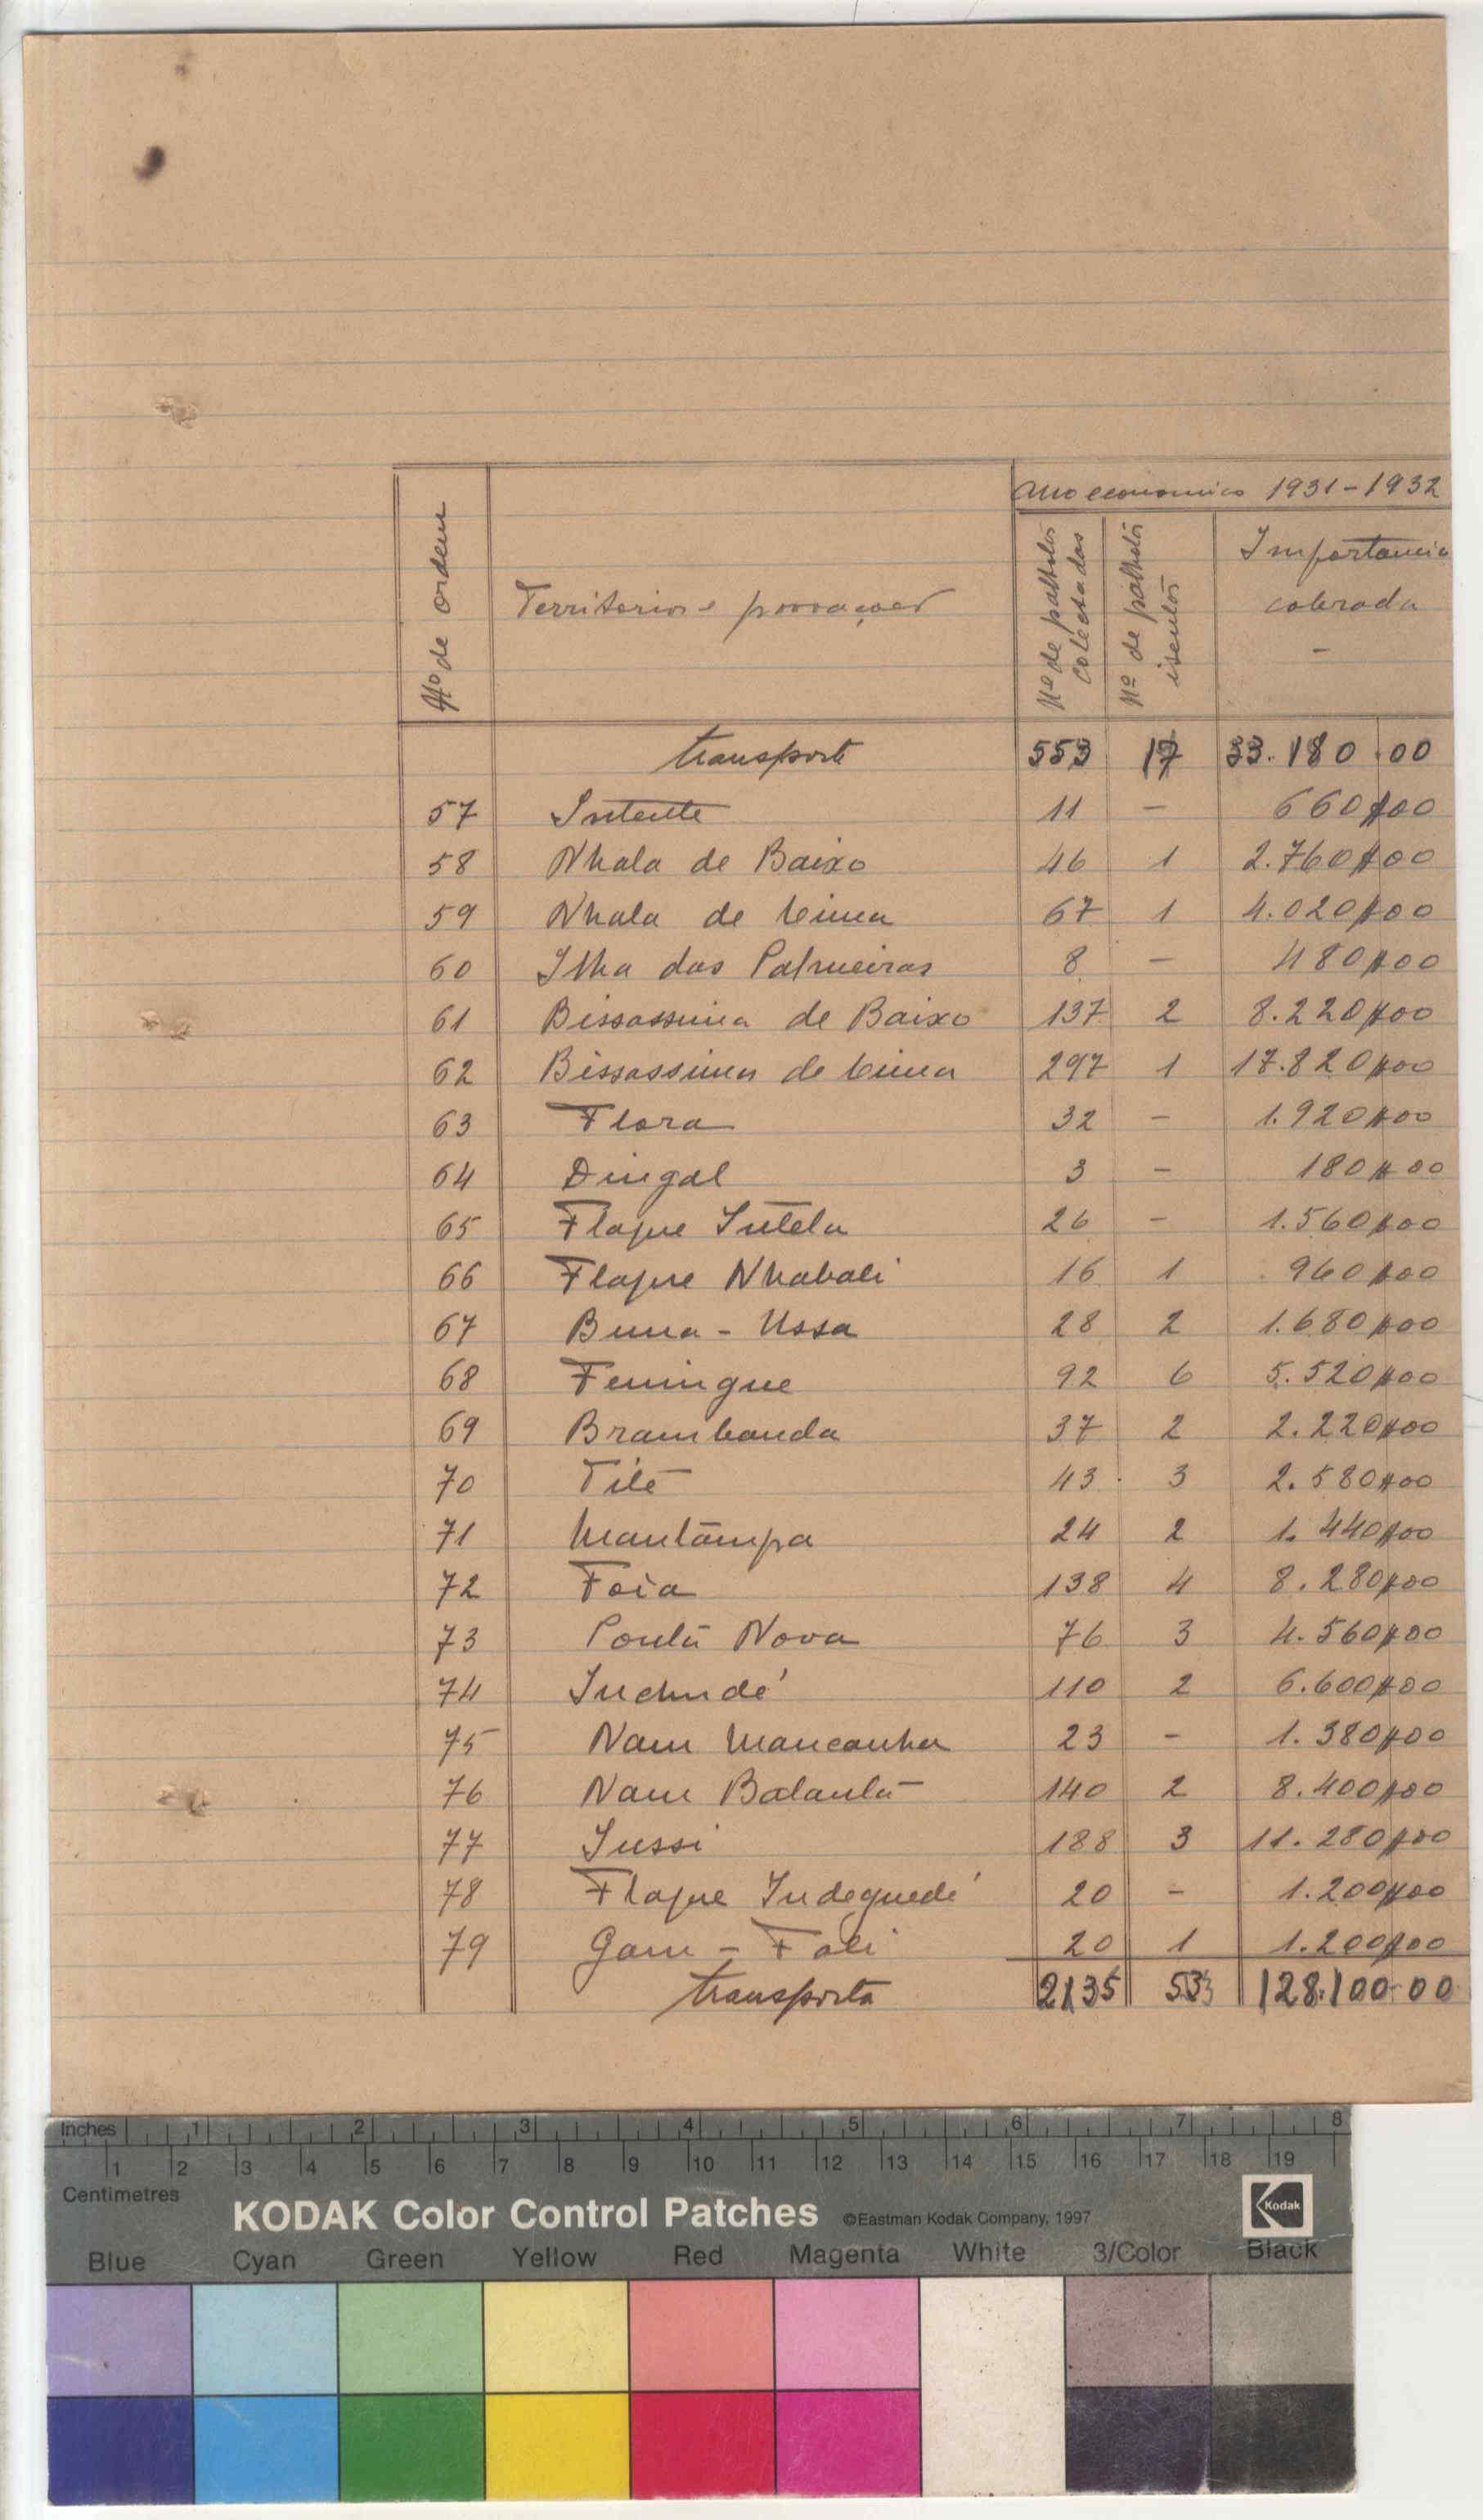 Ano economico 1931-1932
Nº de ordem
Territorios e povoações
Nº de palhotas colectadas
Nº de palhotas isentas
Importancia cobrada
-
transporte 553 17 33.180.00
57 Intente 11 - 660$00
58 Nhala de Baixo 46 1 2.760$00
59 Nhala de Cima 67 1 4.020$00
60 Ilha das Palmeiras 8 - 480$00
61 Bissassima de Baixo 137 2 8.220$00
62 Bissassima de Cima 297 1 17.820$00
63 Flora 32 - 1.920$00
64 Dingal 3 - 180$00
65 Flaque Intela 26 - 1.560$00
66 Flaque Nhabali 16 1 960$00
67 Buma - Ussa 28 2 1.680$00
68 Feningue 92 6 5.520$00
69 Brambanda 37 2 2.220$00
70 Tite 43 3 2.580$00
71 Mantampa 24 2 1.440$00
72 Foia 138 4 8.280$00
73 Ponta Nova 76 3 4.560$00
74 Inchudé 110 2 6.600$00
75 Nam Mancanha 23 - 1.380$00
76 Nam Balanta 140 2 8.400$00
77 Jussi 188 3 11.280$00
78 Flaque Indeguedé 20 - 1.200$00
79 Gam - Fali 20 1 1.200$00
transporta 2135 53 128.100.00
Inches 1 2 3 4 5 6 7 8
1 2 3 4 5 6 7 8 9 10 11 12 13 14 15 16 17 18 19
Centimetres
KODAK Color Control Patches ©Eastman Kodak Company, 1997 Kodak
Blue Cyan Green Yellow Red Magenta White 3/Color Black